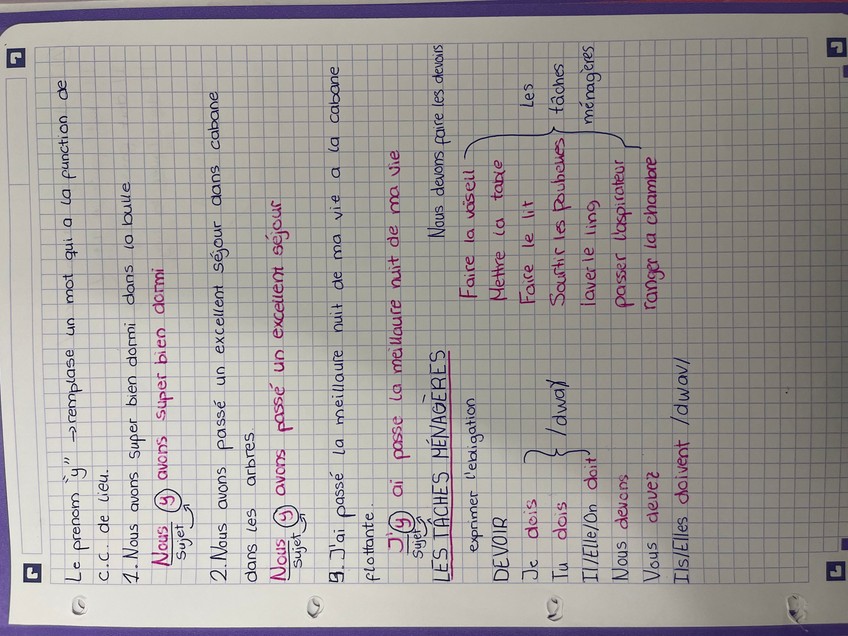 Le prenom "y" → remplase un mot qui a la function de
c.c. de lieu.
1. Nous avons super bien dormi dans la bulle
Nous y avons super bien dormi
Sujet
2. Nous avons passé un excellent séjour dans cabane
dans les arbres
Nous y avons passé un excellent séjour
Sujet
3. J'ai passé la meillaure nuit de ma vie a la cabane
flottante
J'y ai passe la meillaure nuit de ma vie
Sujet
LES TÂCHES MÉNAGÈRES
Nous devons faire les devoirs
exprimer l'obligation
DEVOIR
Je dois
Tu dois
Il/Elle/On doit
/dwa/
Nous devons
Vous devez
Ils/Elles doivent /dwav/
Faire la vaiseil
Mettre la table
Faire le lit
Sourtir les poubeues
laver le ling
passer l'aspirateur
ranger la chambre
Les
tâches
ménagères